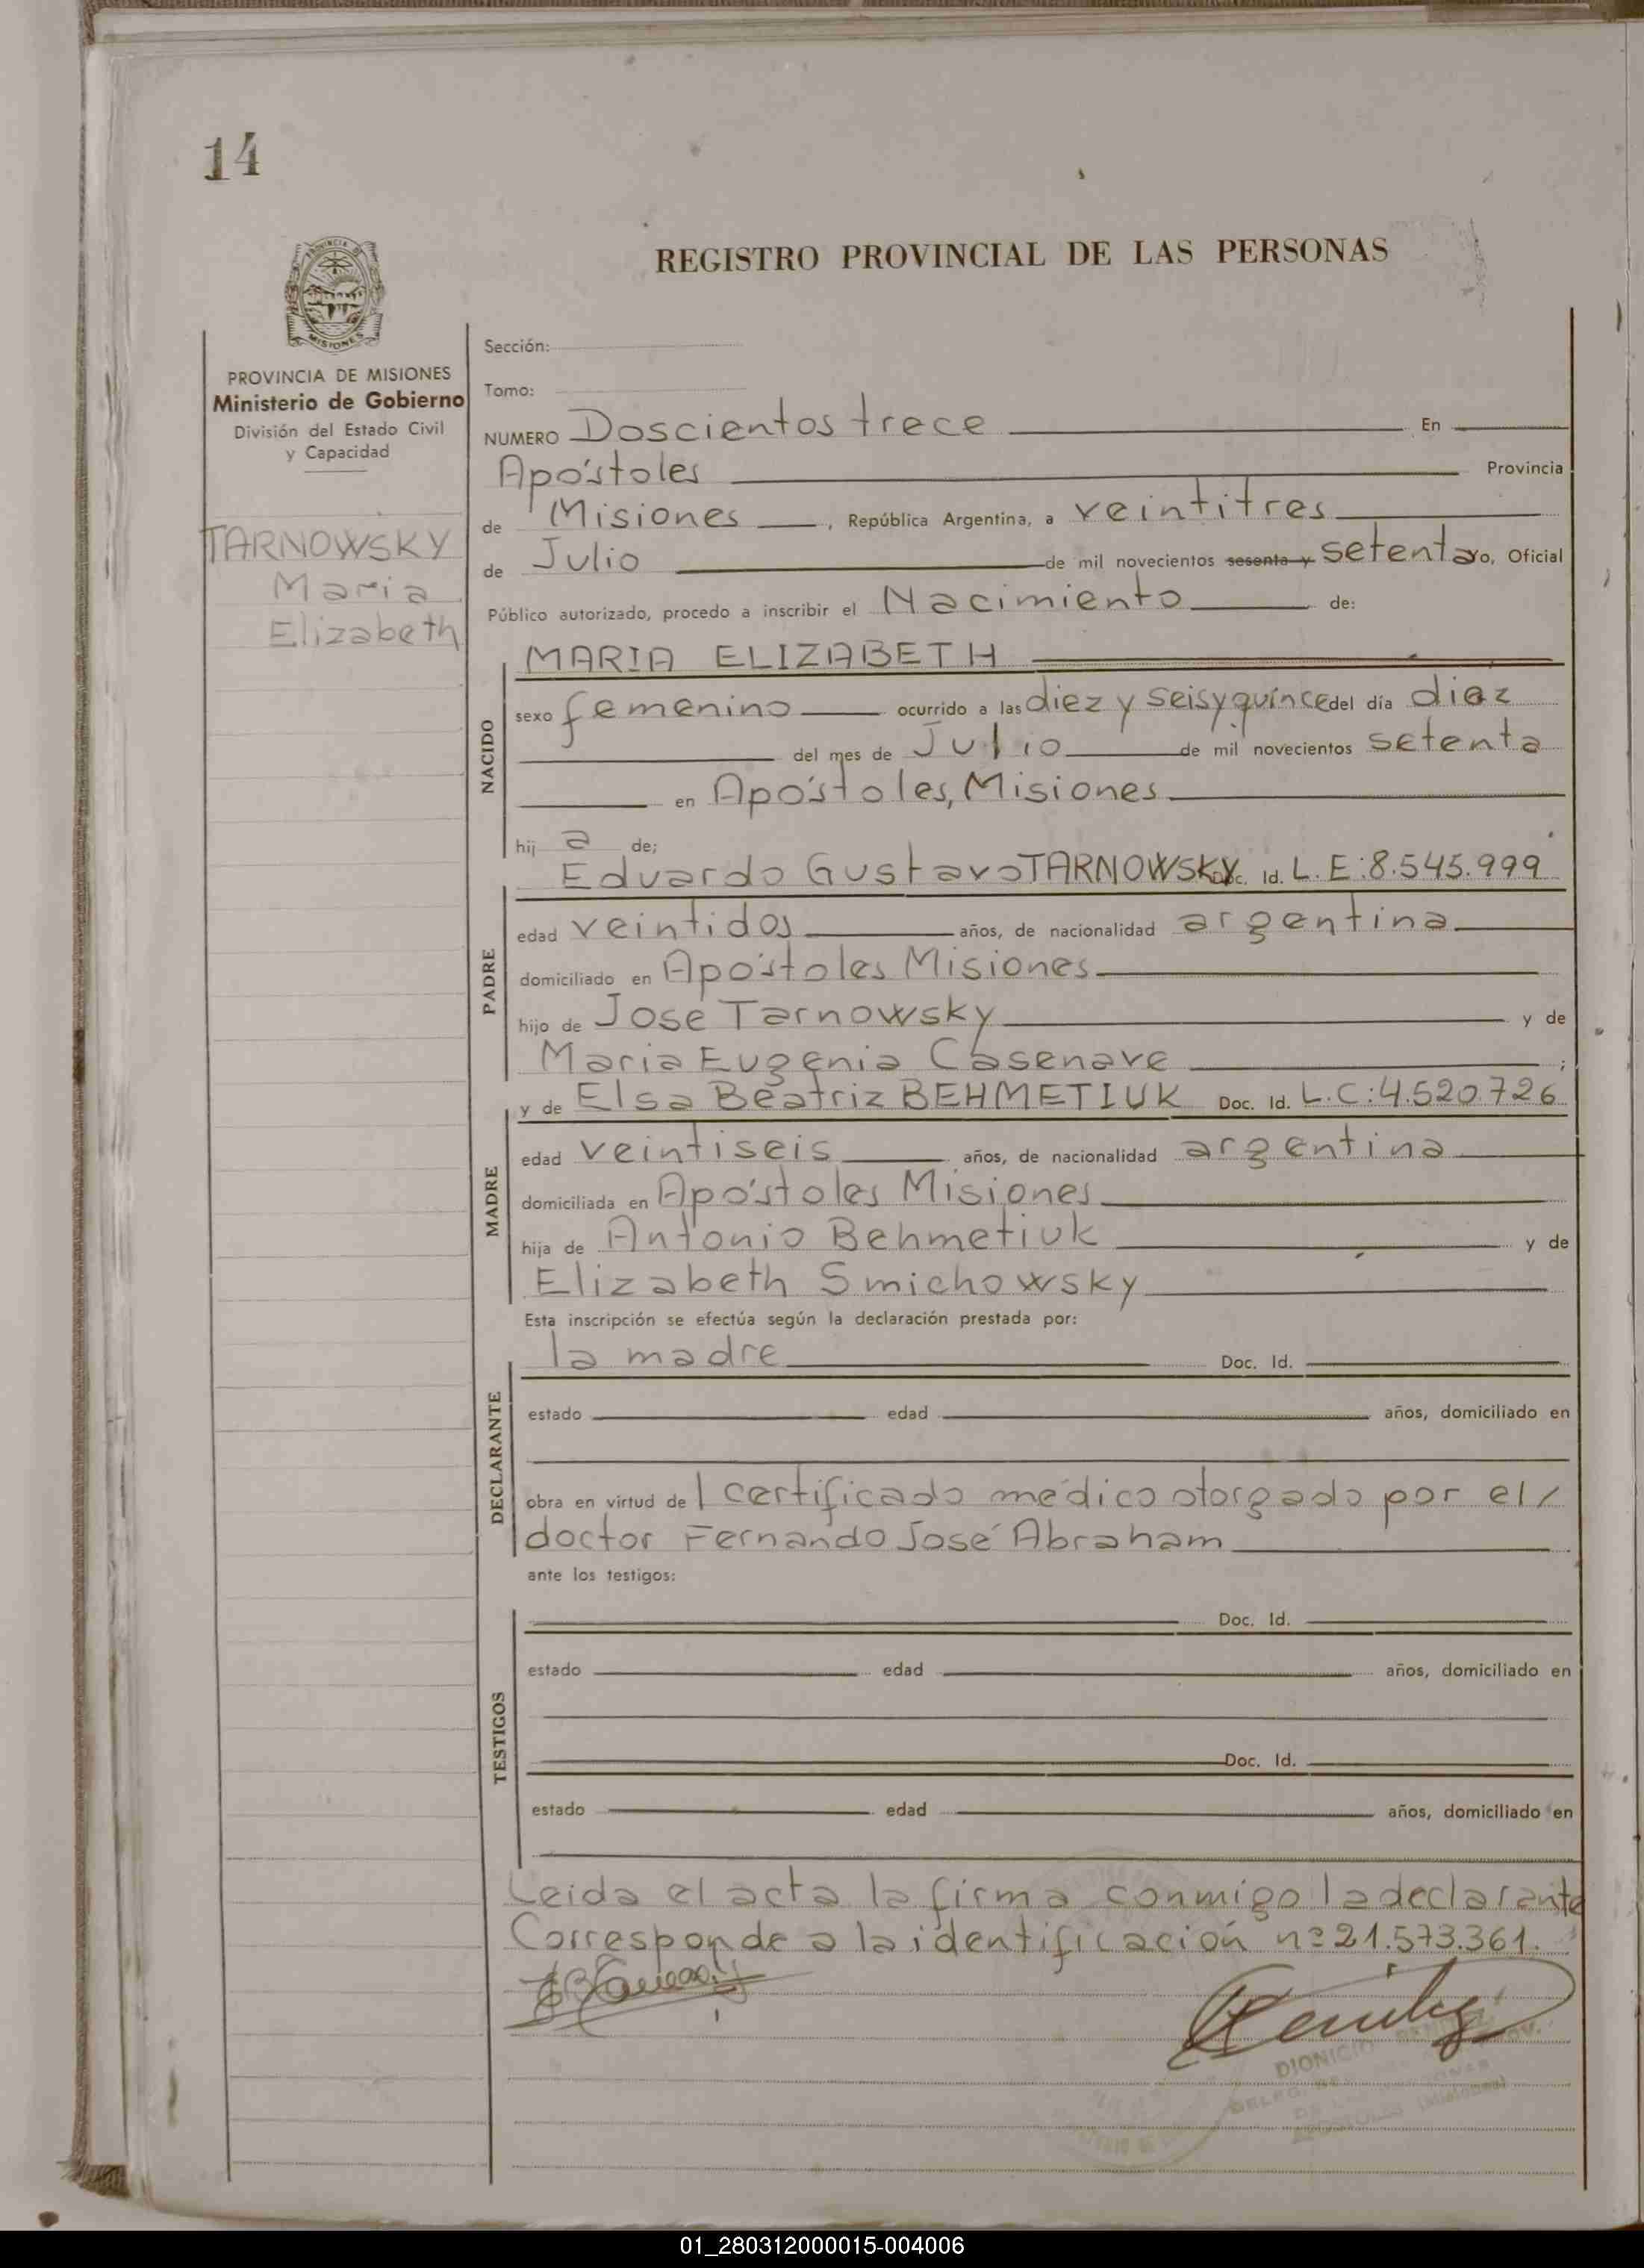 14
REGISTRO PROVINCIAL DE LAS PERSONAS
PROVINCIA DE MISIONES
Ministerio de Gobierno
División del Estado Civil
y Capacidad
TARNOWSKY
Maria
Elizabeth
Sección:
Tomo:
NUMERO Doscientos trece En
Apóstoles Provincia
de Misiones, República Argentina, a veintitres
de Julio de mil novecientos sesenta y setenta yo, Oficial
Público autorizado, procedo a inscribir el Nacimiento de:
NACIDO
MARIA ELIZABETH
sexo femenino ocurrido a las diez y seis y quince del día diez
del mes de Julio de mil novecientos setenta
en Apóstoles, Misiones
hij a de;
PADRE
Eduardo Gustavo TARNOWSKY Doc. Id. L.E:8.545.999
edad veintidos años, de nacionalidad argentina
domiciliado en Apóstoles Misiones
hijo de Jose Tarnowsky y de
Maria Eugenia Casenave ;
MADRE
y de Elsa Beatriz BEHMETIUK Doc. Id. L.C:4.520.726
edad veintiseis años, de nacionalidad argentina
domiciliada en Apóstoles Misiones
hija de Antonio Behmetiuk y de
Elizabeth Smichowsky
Esta inscripción se efectúa según la declaración prestada por:
DECLARANTE
la madre Doc. Id.
estado edad años, domiciliado en
obra en virtud de l certificado médico otorgado por el/
doctor Fernando José Abraham
ante los testigos:
TESTIGOS
Doc. Id.
estado edad años, domiciliado en
Doc. Id.
estado edad años, domiciliado en
Leida el acta la firma conmigo la declarante
Corresponde a la identificación nº 21.573.361.
DIONICIO
APOSTOLES (Misiones)
01_280312000015-004006